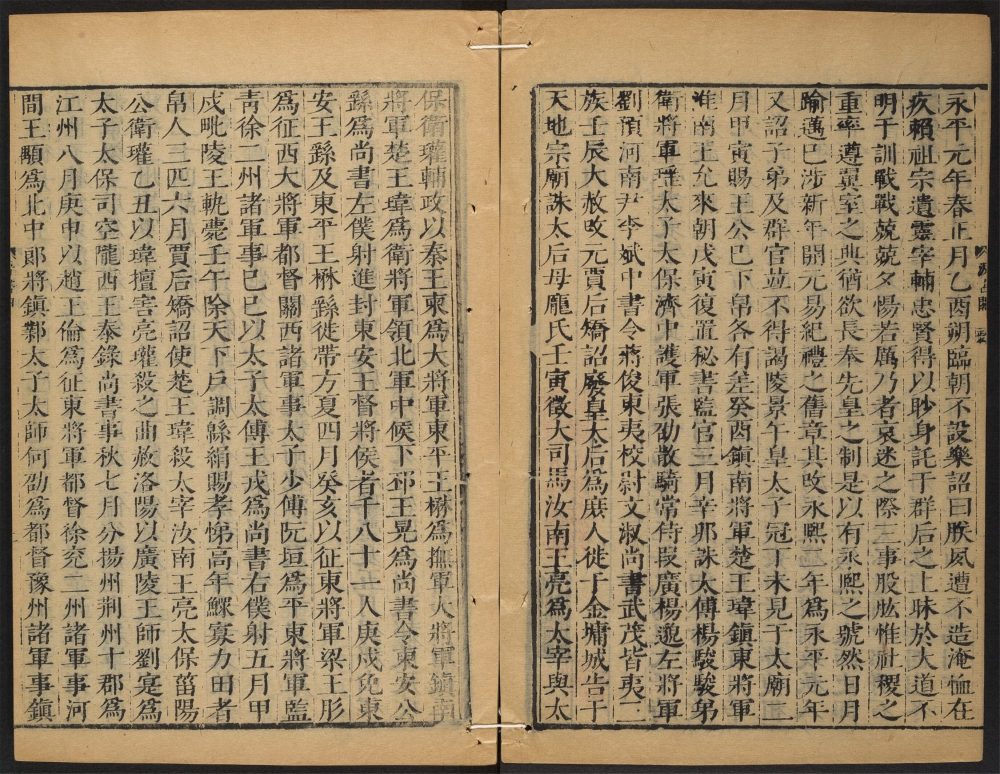 永平元年春正月乙酉朔臨朝不設樂詔曰朕夙遭不造淹恤在
疚賴祖宗遺靈宰輔忠賢得以眇身託于群后之上昧於大道不
明于訓戰戰兢兢夕惕若厲乃者哀迷之際三事股肱惟社稷之
重率遵翼室之典猶欲長奉先皇之制是以有永熙之號然日月
踰邁已涉新年開元易紀禮之舊章其改永熙二年為永平元年
又詔子弟及群官並不得謁陵景午皇太子冠丁未見于太廟二
月甲寅賜王公已下帛各有差癸酉鎮南將軍楚王瑋鎮東將軍
淮南王允來朝戊寅復置秘書監官三月辛卯誅太傅楊駿駿弟
衛將軍珧太子太保濟中護軍張劭散騎常侍段廣楊邈左將軍
劉預河南尹李斌中書令蔣俊東夷校尉文淑尚書武茂皆夷三
族壬辰大赦改元賈后矯詔廢皇太后為庶人徙于金墉城告于
天地宗廟誅太后母龐氏壬寅徵大司馬汝南王亮為太宰與太
保衛瓘輔政以秦王柬為大將軍東平王楙為撫軍大將軍鎮南
將軍楚王瑋為衛將軍領北軍中候下邳王晃為尚書令東安公
繇為尚書左僕射進封東安王督將侯者千八十一人庚戌免東
安王繇及東平王楙繇徙帶方夏四月癸亥以征東將軍梁王肜
為征西大將軍都督關西諸軍事太子少傅阮垣為平東將軍監
青徐二州諸軍事己巳以太子太傅王戎為尚書右僕射五月甲
戌毗陵王軌薨壬午除天下戶調緜絹賜孝悌高年鰥寡力田者
帛人三匹六月賈后矯詔使楚王瑋殺太宰汝南王亮太保菑陽
公衛瓘乙丑以瑋擅害亮瓘殺之曲赦洛陽以廣陵王師劉寔為
太子太保司空隴西王泰錄尚書事秋七月分揚州荊州十郡為
江州八月庚申以趙王倫為征東將軍都督徐兗二州諸軍事河
間王顒為北中郎將鎮鄴太子太師何劭為都督豫州諸軍事鎮